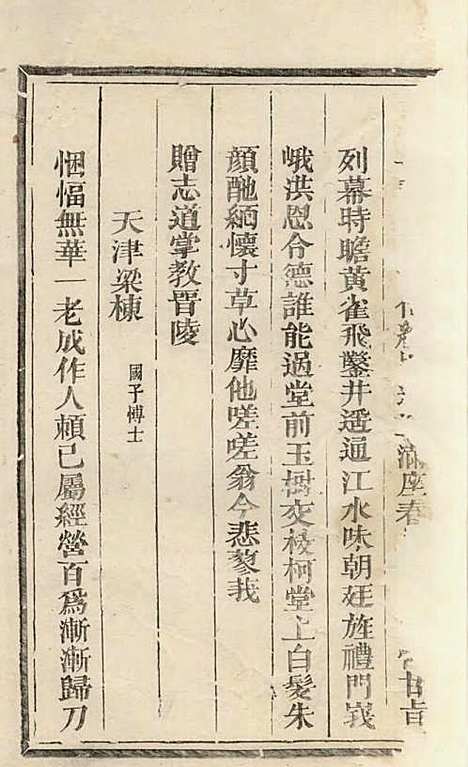 滿座春 甘旨
列幕時瞻黃雀飛鑿井遥通江水味朝廷旌禮門峩
峨洪恩令德誰能過堂前玉樹交枝柯堂上白髮朱
顔酡緬懷寸草心靡他嗟嗟翁今悲蓼莪
贈志道掌教晋陵
天津梁棟 國子博士
悃愊無華一老成作人頼已屬經營百爲漸漸歸刀